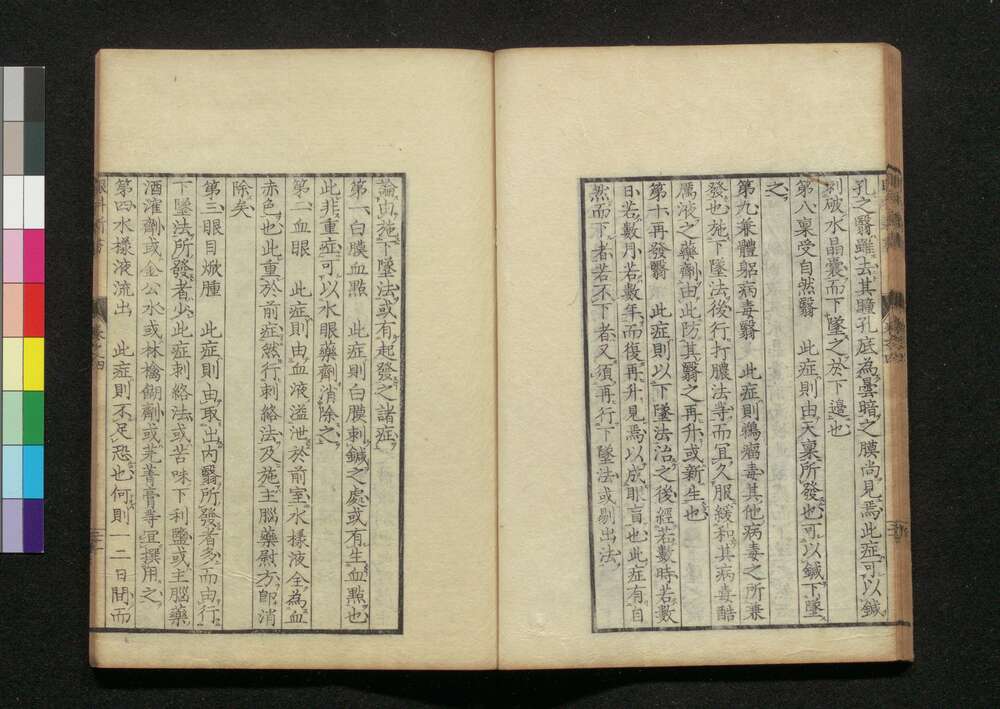 孔之翳雖去其瞳孔底為曇暗之膜尚見焉此症可以鍼
刺破水晶囊而下墜之於下邉也
第八稟受自然翳　此症則由天稟所發也可以鍼下墜
之
第九兼體軀病毒翳　此症則鵝瘤毒其他病毒之所兼
發也施下墜法後行打膿法等而宜久服緩和其病毒酷
厲液之藥劑由此防其翳之再升或新生也
第十再發翳　此症則以下墜法治之後經若數時若數
日若數月若數年而復再升見焉以成眼盲也此症有自
然而下者若不下者又須再行下墜法或剔出法
論由施下墜法或有起發之諸症
第一白膜血點　此症則白膜刺鍼之處或有生血點也
此非重症可以水眼藥劑消除之
第二血眼　此症則由血液溢泄於前室水樣液全為血
赤色也此重於前症然行刺絡法及施主腦藥慰方即消
除矣
第三眼目焮腫　此症則由取出内翳所發者多而由行
下墜法所發者少此症刺絡法或苦味下利鹽或主腦藥
酒灌劑或金公水或林檎餬劑或芫菁膏等宜撰用之
第四水樣液流出　此症則不足恐也何則一二日間而
眼科新書
卷之四